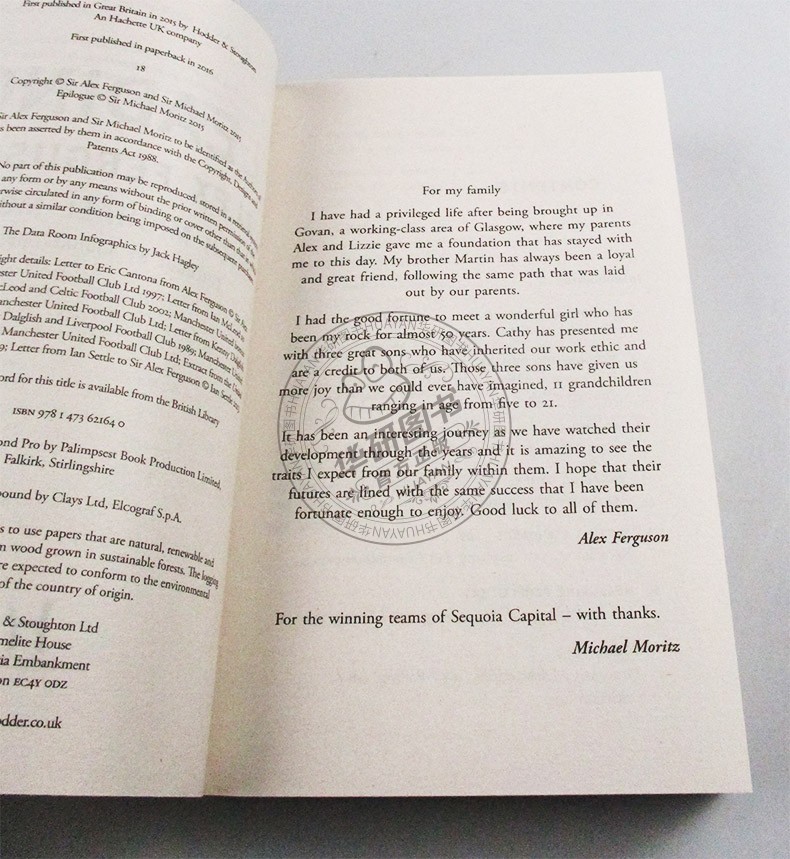 First published in Great Britain in 2015 by Hodder & Stoughton
An Hachette UK company
First published in paperback in 2016
18
Copyright © Sir Alex Ferguson and Sir Michael Moritz 2015
Epilogue © Sir Michael Moritz 2015
Sir Alex Ferguson and Sir Michael Moritz to be identified as the Authors of
been asserted by them in accordance with the Copyright, Designs and
Patents Act 1988.
No part of this publication may be reproduced, stored in a retrieval system,
any form or by any means without the prior written permission of the
circulated in any form of binding or cover other than that in which
without a similar condition being imposed on the subsequent purchaser.
The Data Room Infographics by Jack Hagley
details: Letter to Eric Cantona from Alex Ferguson ©
United Football Club Ltd 1997; Letter from Ian McLeod
and Celtic Football Club 2002; Manchester United
Manchester United Football Club Ltd; Letter from Kenny Dalglish
Dalglish and Liverpool Football Club 1989; Manchester United
Manchester United Football Club Ltd; Extract from the
Letter from Ian Settle to Sir Alex Ferguson © Ian Settle
for this title is available from the British Library
ISBN 978 1 473 62164 0
Pro by Palimpsest Book Production Limited,
Falkirk, Stirlingshire
bound by Clays Ltd, Elcograf S.p.A.
to use papers that are natural, renewable and
wood grown in sustainable forests. The logging
expected to conform to the environmental
of the country of origin.
& Stoughton Ltd
House
Embankment
EC4Y 0DZ
.co.uk
For my family
I have had a privileged life after being brought up in
Govan, a working-class area of Glasgow, where my parents
Alex and Lizzie gave me a foundation that has stayed with
me to this day. My brother Martin has always been a loyal
and great friend, following the same path that was laid
out by our parents.
I had the good fortune to meet a wonderful girl who has
been my rock for almost 50 years. Cathy has presented me
with three great sons who have inherited our work ethic and
are a credit to both of us. Those three sons have given us
more joy than we could ever have imagined, 11 grandchildren
ranging in age from five to 21.
It has been an interesting journey as we have watched their
development through the years and it is amazing to see the
traits I expect from our family within them. I hope that their
futures are lined with the same success that I have been
fortunate enough to enjoy. Good luck to all of them.
Alex Ferguson
For the winning teams of Sequoia Capital – with thanks.
Michael Moritz
华研图书HUAYAN
华研图书